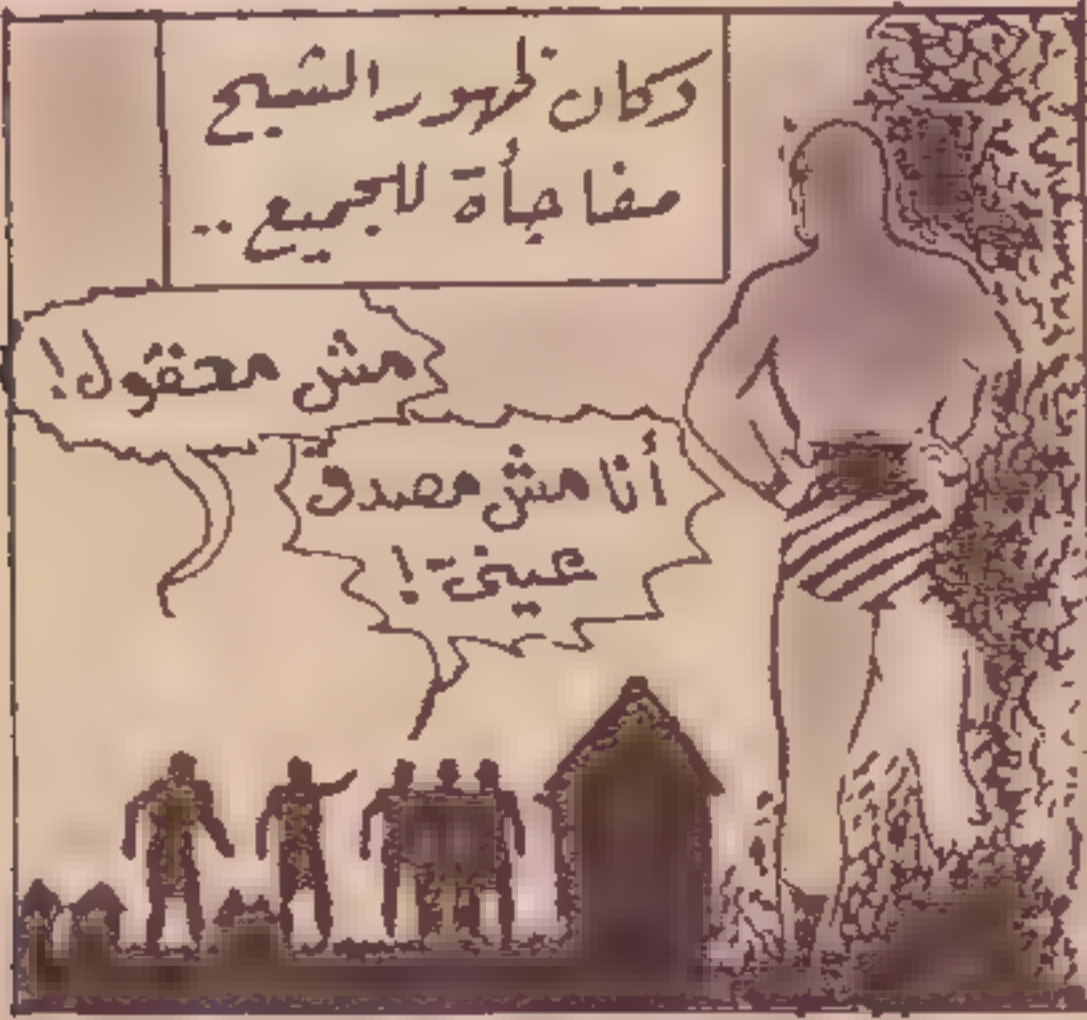 وكان ظهور الشبح
مفاجأة للجميع..
مش معقول!
أنا مش مصدق
عينى!